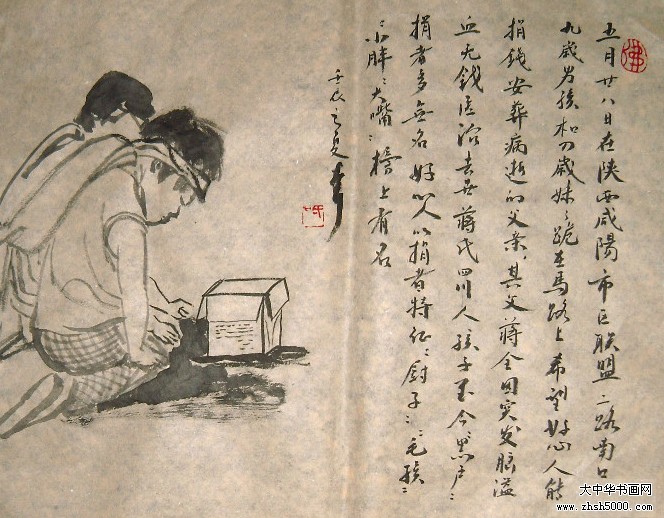 佛
五月廿八日在陕西咸陽市区联盟二路南口
九歳男孩和四歳妹〻跪在馬路上希望好心人能
捐钱安葬病逝的父亲,其父蒋全 突发脑溢
血无钱医治去世蒋氏四川人孩子至今黑户
捐者多無名 好心人以捐者特征:厨子:毛孩:
:小胖:大嘴:榜上有名
壬辰之夏
大中华书画网
www.zhsh5000.com